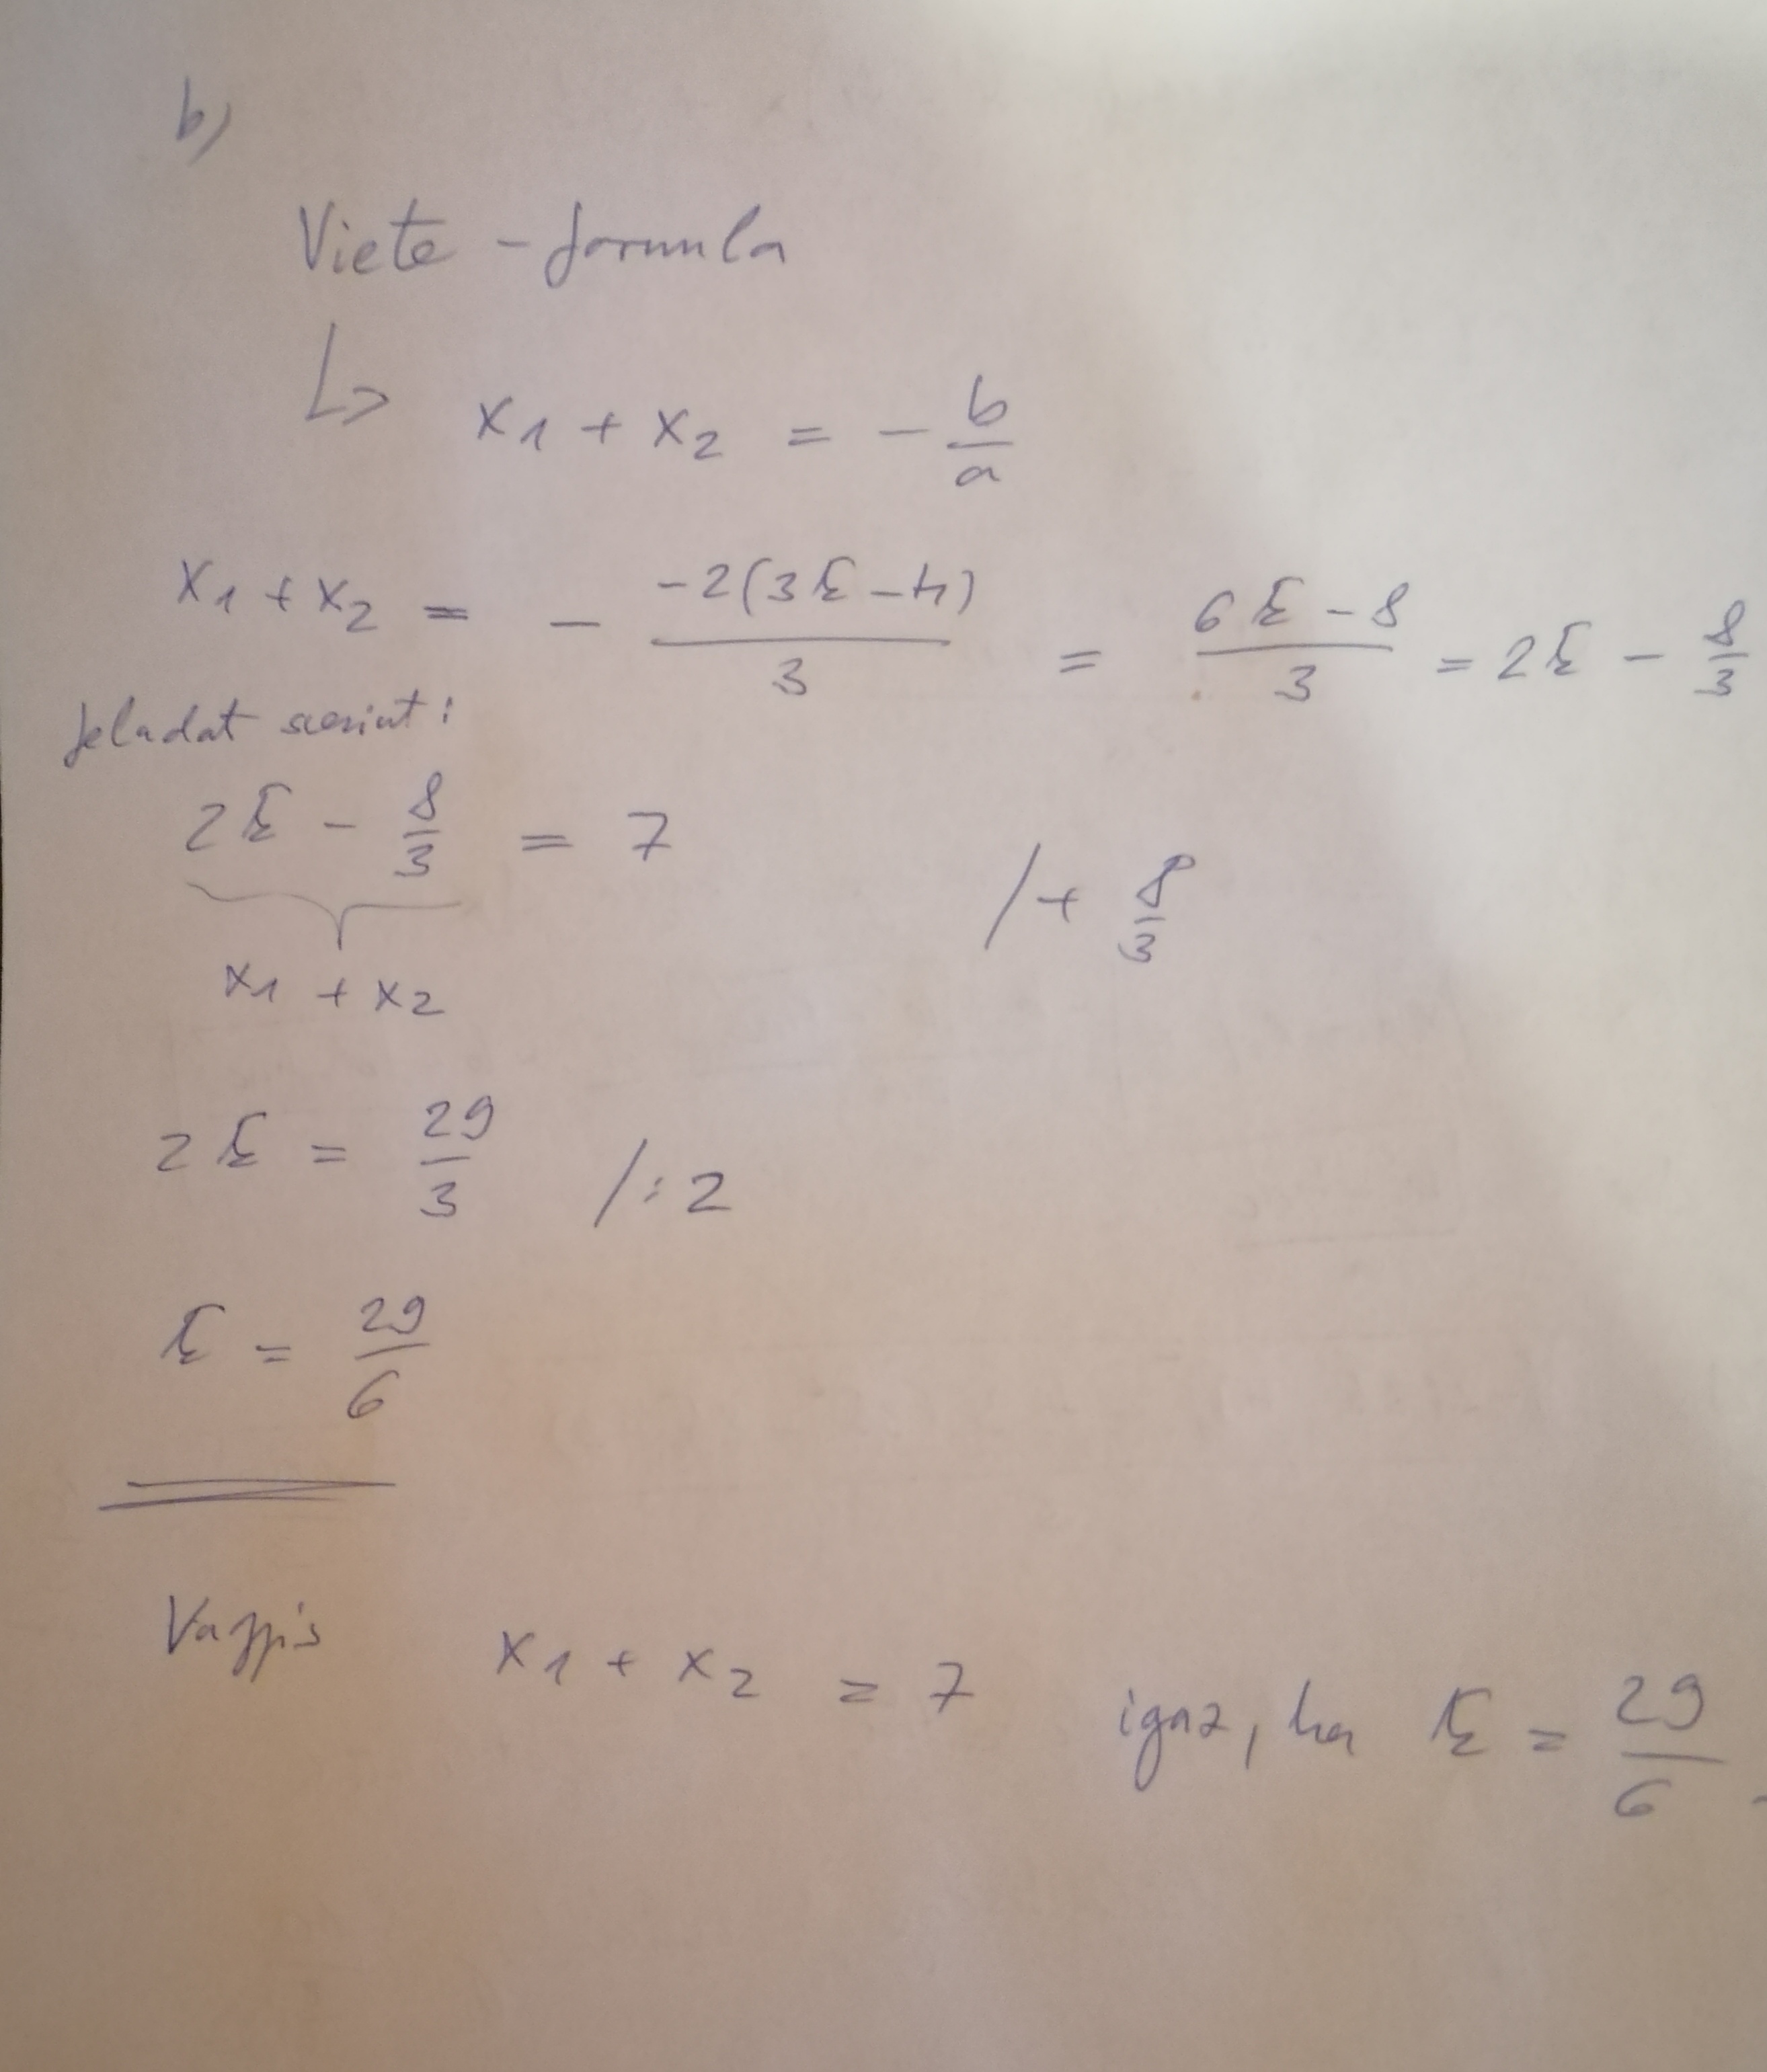 b)
Viete - formula
↳ x₁ + x₂ = - b/a
x₁ + x₂ = - (-2(3k - 4))/3 = (6k - 8)/3 = 2k - 8/3
feladat szerint:
2k - 8/3 = 7 / + 8/3
x₁ + x₂
2k = 29/3 / : 2
k = 29/6
Vagyis x₁ + x₂ = 7 igaz, ha k = 29/6.